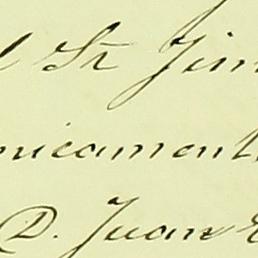 Sr Jim
nicament
D. Juan